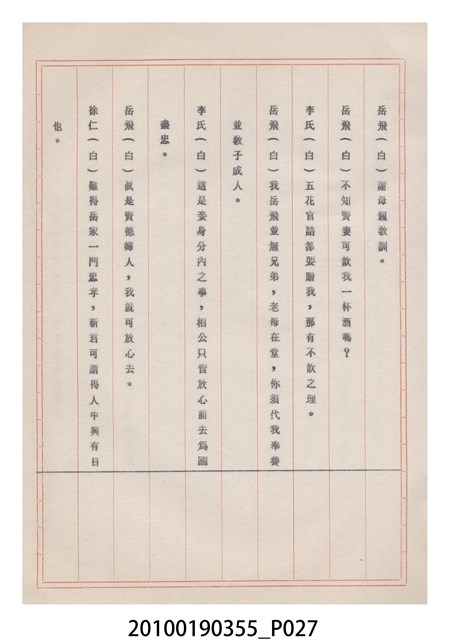 岳飛(白)謝母親教訓。
岳飛(白)不知賢妻可飲我一杯酒嗎?
李氏(白)五花官誥都要贈我,那有不飲之理。
岳飛(白)我岳飛並無兄弟,老母在堂,你須代我奉養
並教子成人。
李氏(白)這是妾身分內之事,相公只管放心前去為國
盡忠。
岳飛(白)眞是賢德婦人,我就可放心去。
徐仁(白)難得岳家一門忠孝,新君可謂得人中興有日
也。
20100190355_P027